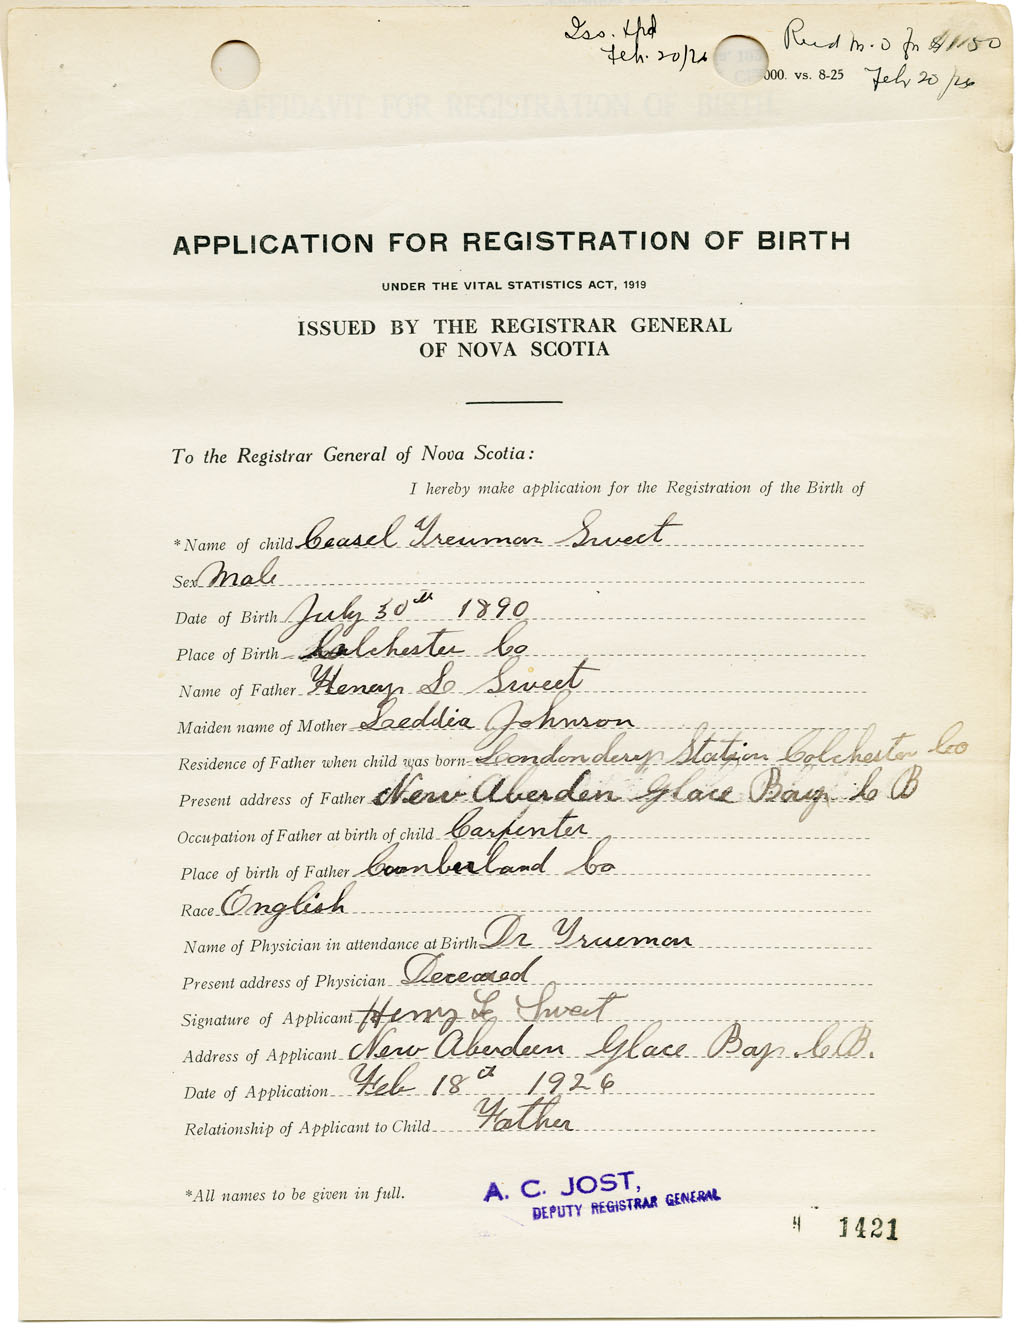 Iss. Apd
Feb. 20/26
Recd M. O for $1.50
000. vs. 8-25
Feb 20/26
APPLICATION FOR REGISTRATION OF BIRTH
UNDER THE VITAL STATISTICS ACT, 1919
ISSUED BY THE REGISTRAR GENERAL
OF NOVA SCOTIA
To the Registrar General of Nova Scotia:
I hereby make application for the Registration of the Birth of
*Name of child Ceasel Treuman Sweet
Sex Male
Date of Birth July 30th 1890
Place of Birth Colchester Co
Name of Father Henery L Sweet
Maiden name of Mother Leddia Johnson
Residence of Father when child was born Londondery Station Colchester Co
Present address of Father New Aberden Glace Bay C B
Occupation of Father at birth of child Carpenter
Place of birth of Father Coomberland Co
Race English
Name of Physician in attendance at Birth Dr Trueman
Present address of Physician Deceased
Signature of Applicant Henry L Sweet
Address of Applicant New Aberdeen Glace Bay C.B.
Date of Application Feb 18th 1926
Relationship of Applicant to Child Father
*All names to be given in full.
A. C. JOST,
DEPUTY REGISTRAR GENERAL
1421